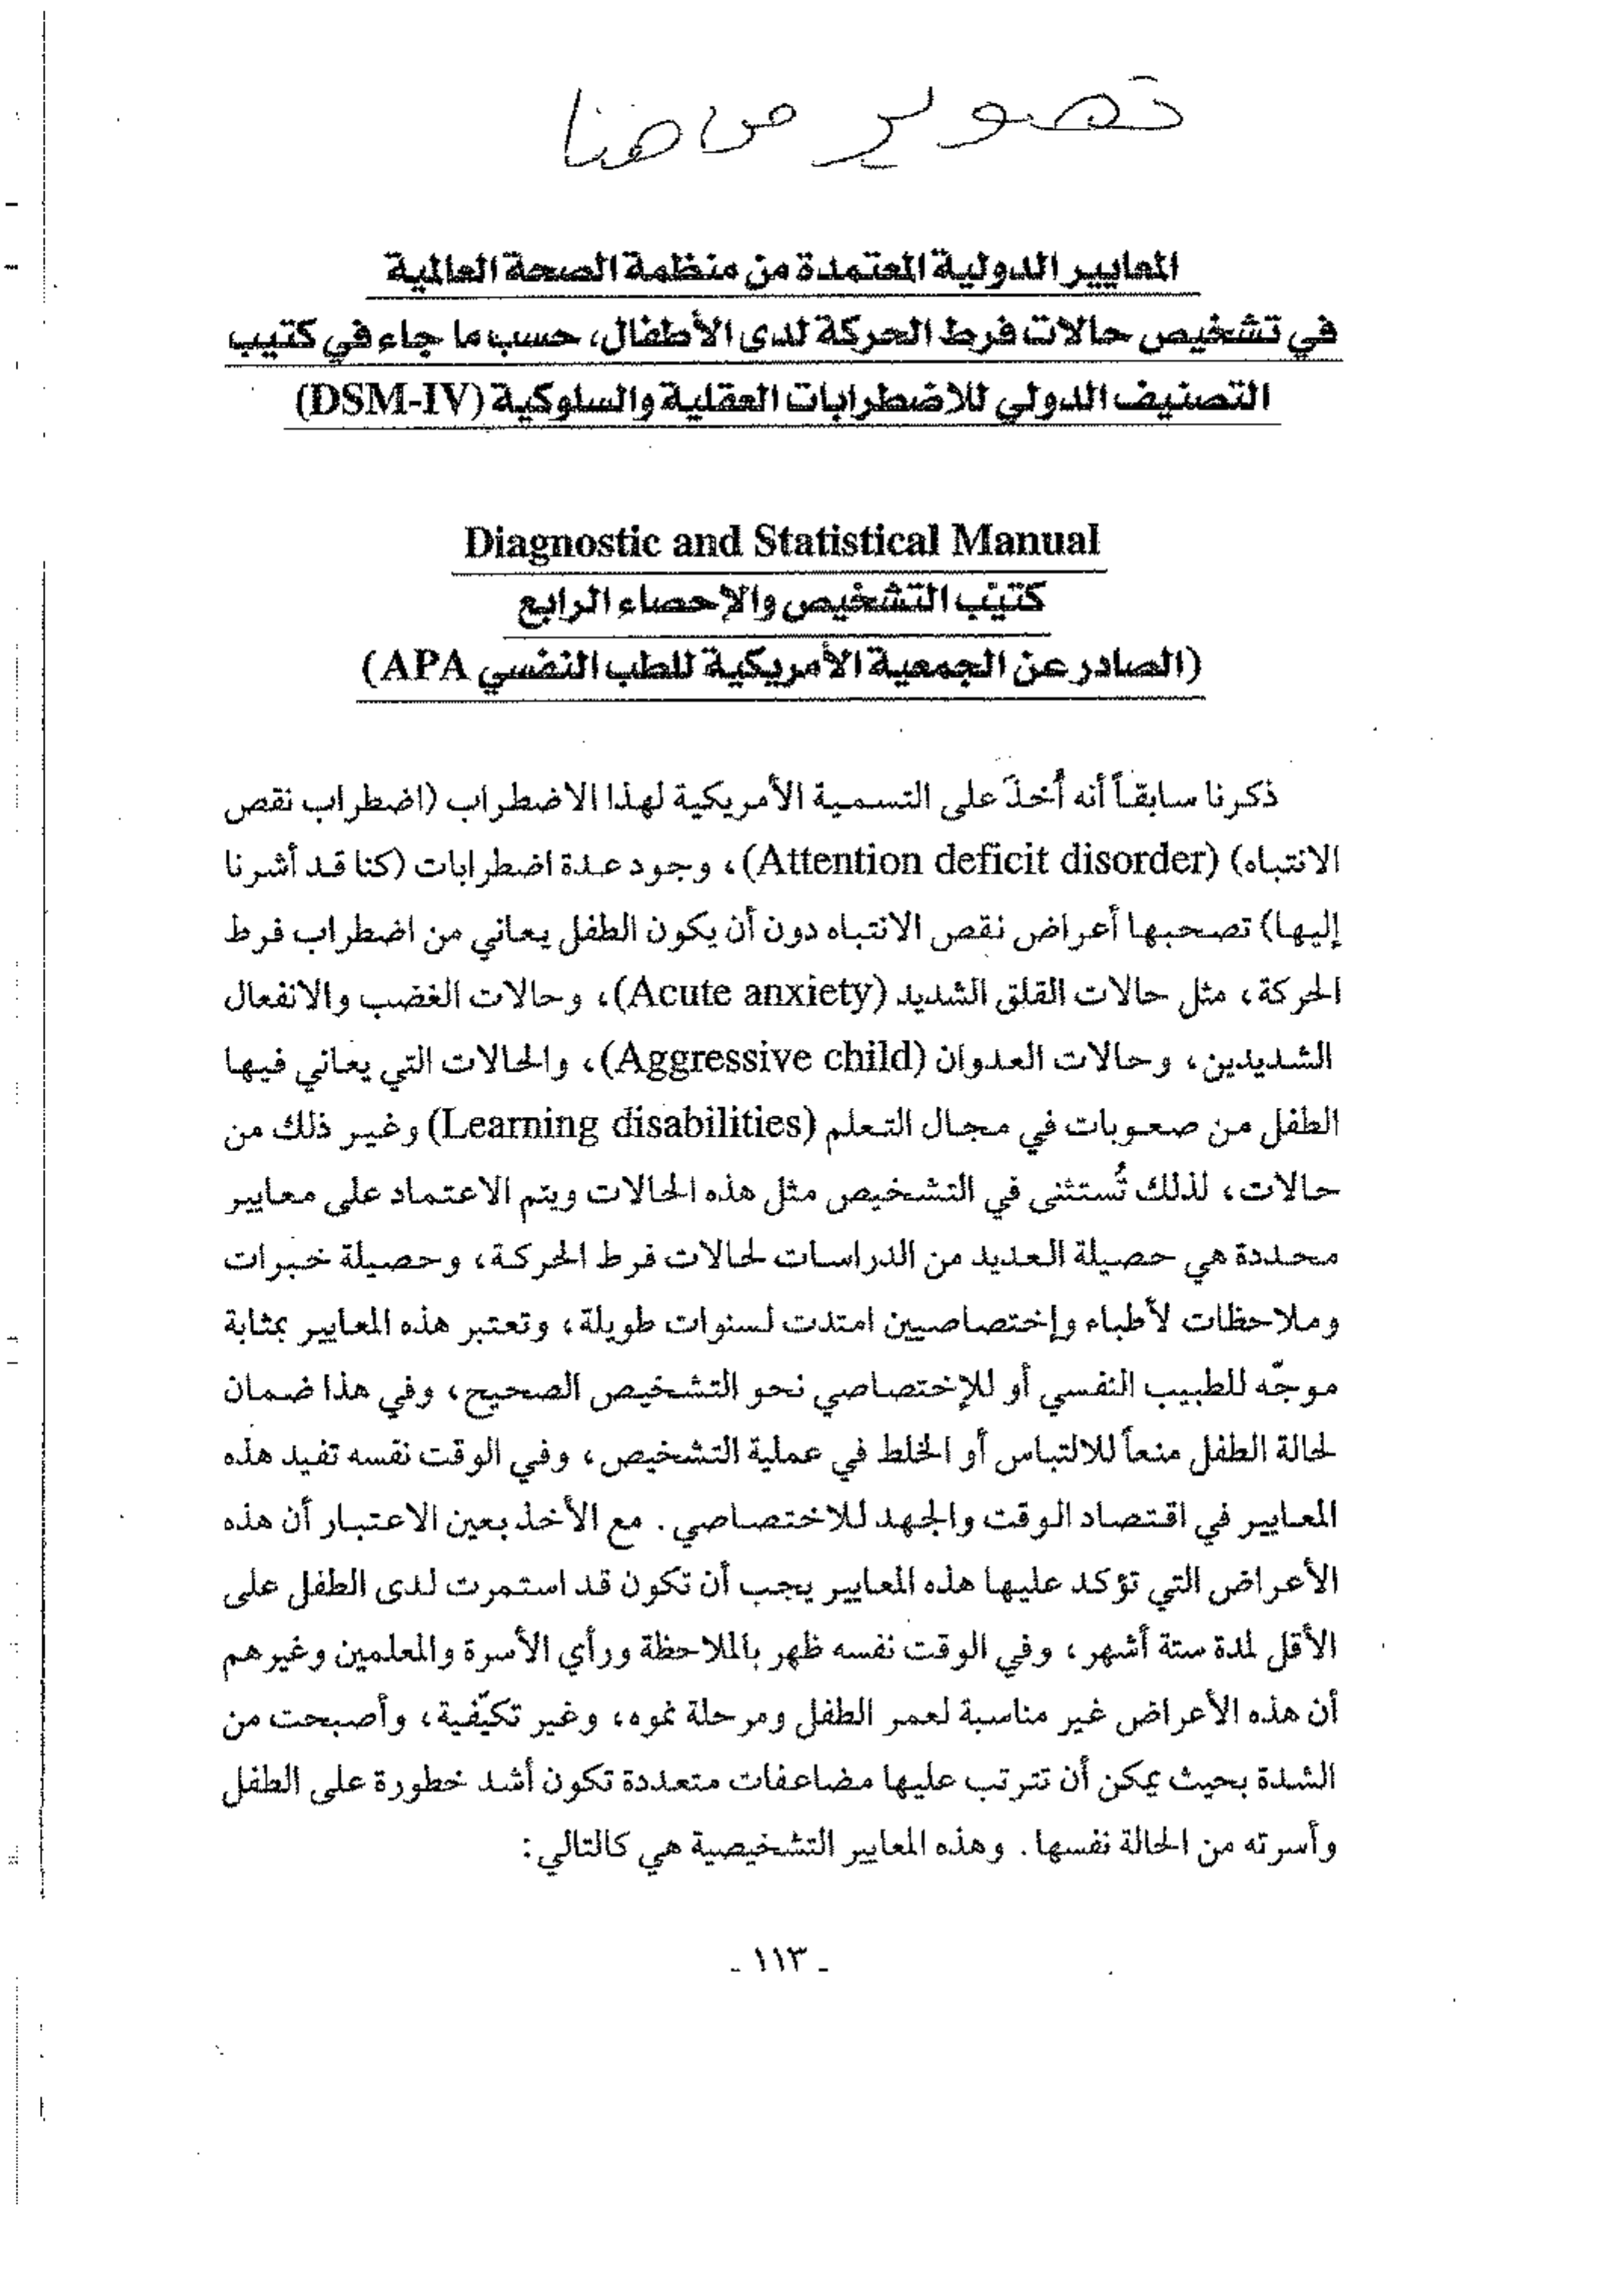 تصوير من هنا
المعايير الدولية المعتمدة من منظمة الصحة العالمية
في تشخيص حالات فرط الحركة لدى الأطفال، حسب ما جاء في كتيب
التصنيف الدولي للاضطرابات العقلية والسلوكية (DSM-IV)
Diagnostic and Statistical Manual
كتيّب التشخيص والإحصاء الرابع
(الصادر عن الجمعية الأمريكية للطب النفسي APA)
ذكرنا سابقاً أنه أُخذَ على التسمية الأمريكية لهذا الاضطراب (اضطراب نقص
الانتباه) (Attention deficit disorder)، وجود عدة اضطرابات (كنا قد أشرنا
إليها) تصحبها أعراض نقص الانتباه دون أن يكون الطفل يعاني من اضطراب فرط
الحركة، مثل حالات القلق الشديد (Acute anxiety)، وحالات الغضب والانفعال
الشديدين، وحالات العدوان (Aggressive child)، والحالات التي يعاني فيها
الطفل من صعوبات في مجال التعلم (Learning disabilities) وغير ذلك من
حالات، لذلك تُستثنى في التشخيص مثل هذه الحالات ويتم الاعتماد على معايير
محددة هي حصيلة العديد من الدراسات لحالات فرط الحركة، وحصيلة خبرات
وملاحظات لأطباء وإختصاصيين امتدت لسنوات طويلة، وتعتبر هذه المعايير بمثابة
موجّه للطبيب النفسي أو للإختصاصي نحو التشخيص الصحيح، وفي هذا ضمان
لحالة الطفل منعاً للالتباس أو الخلط في عملية التشخيص، وفي الوقت نفسه تفيد هذه
المعايير في اقتصاد الوقت والجهد للاختصاصي. مع الأخذ بعين الاعتبار أن هذه
الأعراض التي تؤكد عليها هذه المعايير يجب أن تكون قد استمرت لدى الطفل على
الأقل لمدة ستة أشهر، وفي الوقت نفسه ظهر بالملاحظة ورأي الأسرة والمعلمين وغيرهم
أن هذه الأعراض غير مناسبة لعمر الطفل ومرحلة نموه، وغير تكيّفية، وأصبحت من
الشدة بحيث يمكن أن تترتب عليها مضاعفات متعددة تكون أشد خطورة على الطفل
وأسرته من الحالة نفسها. وهذه المعايير التشخيصية هي كالتالي:
- ١١٣ -